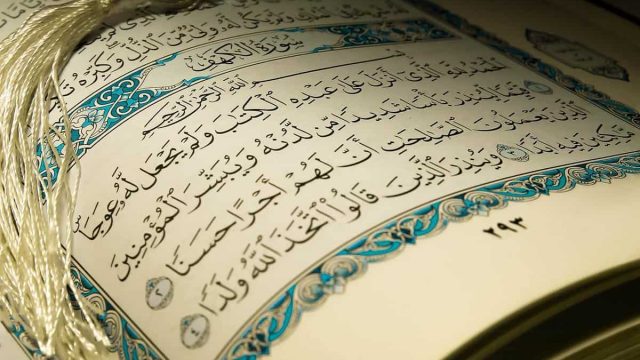 وَلِىٌّ مِّنَ ٱلذُّلِّ وَكَبِّرْهُ تَكْبِيرًا
سُورَةُ الكَهْفِ
بِسْمِ ٱللَّهِ ٱلرَّحْمَٰنِ ٱلرَّحِيمِ
ٱلْحَمْدُ لِلَّهِ ٱلَّذِىٓ أَنزَلَ عَلَىٰ عَبْدِهِ ٱلْكِتَٰبَ وَلَمْ يَجْعَل لَّهُۥ عِوَجَا
قَيِّمًا لِّيُنذِرَ بَأْسًا شَدِيدًا مِّن لَّدُنْهُ وَيُبَشِّرَ ٱلْمُؤْمِنِينَ
ٱلَّذِينَ يَعْمَلُونَ ٱلصَّٰلِحَٰتِ أَنَّ لَهُمْ أَجْرًا حَسَنًا ٢
مَّٰكِثِينَ فِيهِ أَبَدًا وَيُنذِرَ ٱلَّذِينَ قَالُوا۟ ٱتَّخَذَ ٱللَّهُ وَلَدًا ٤
٢٩٣